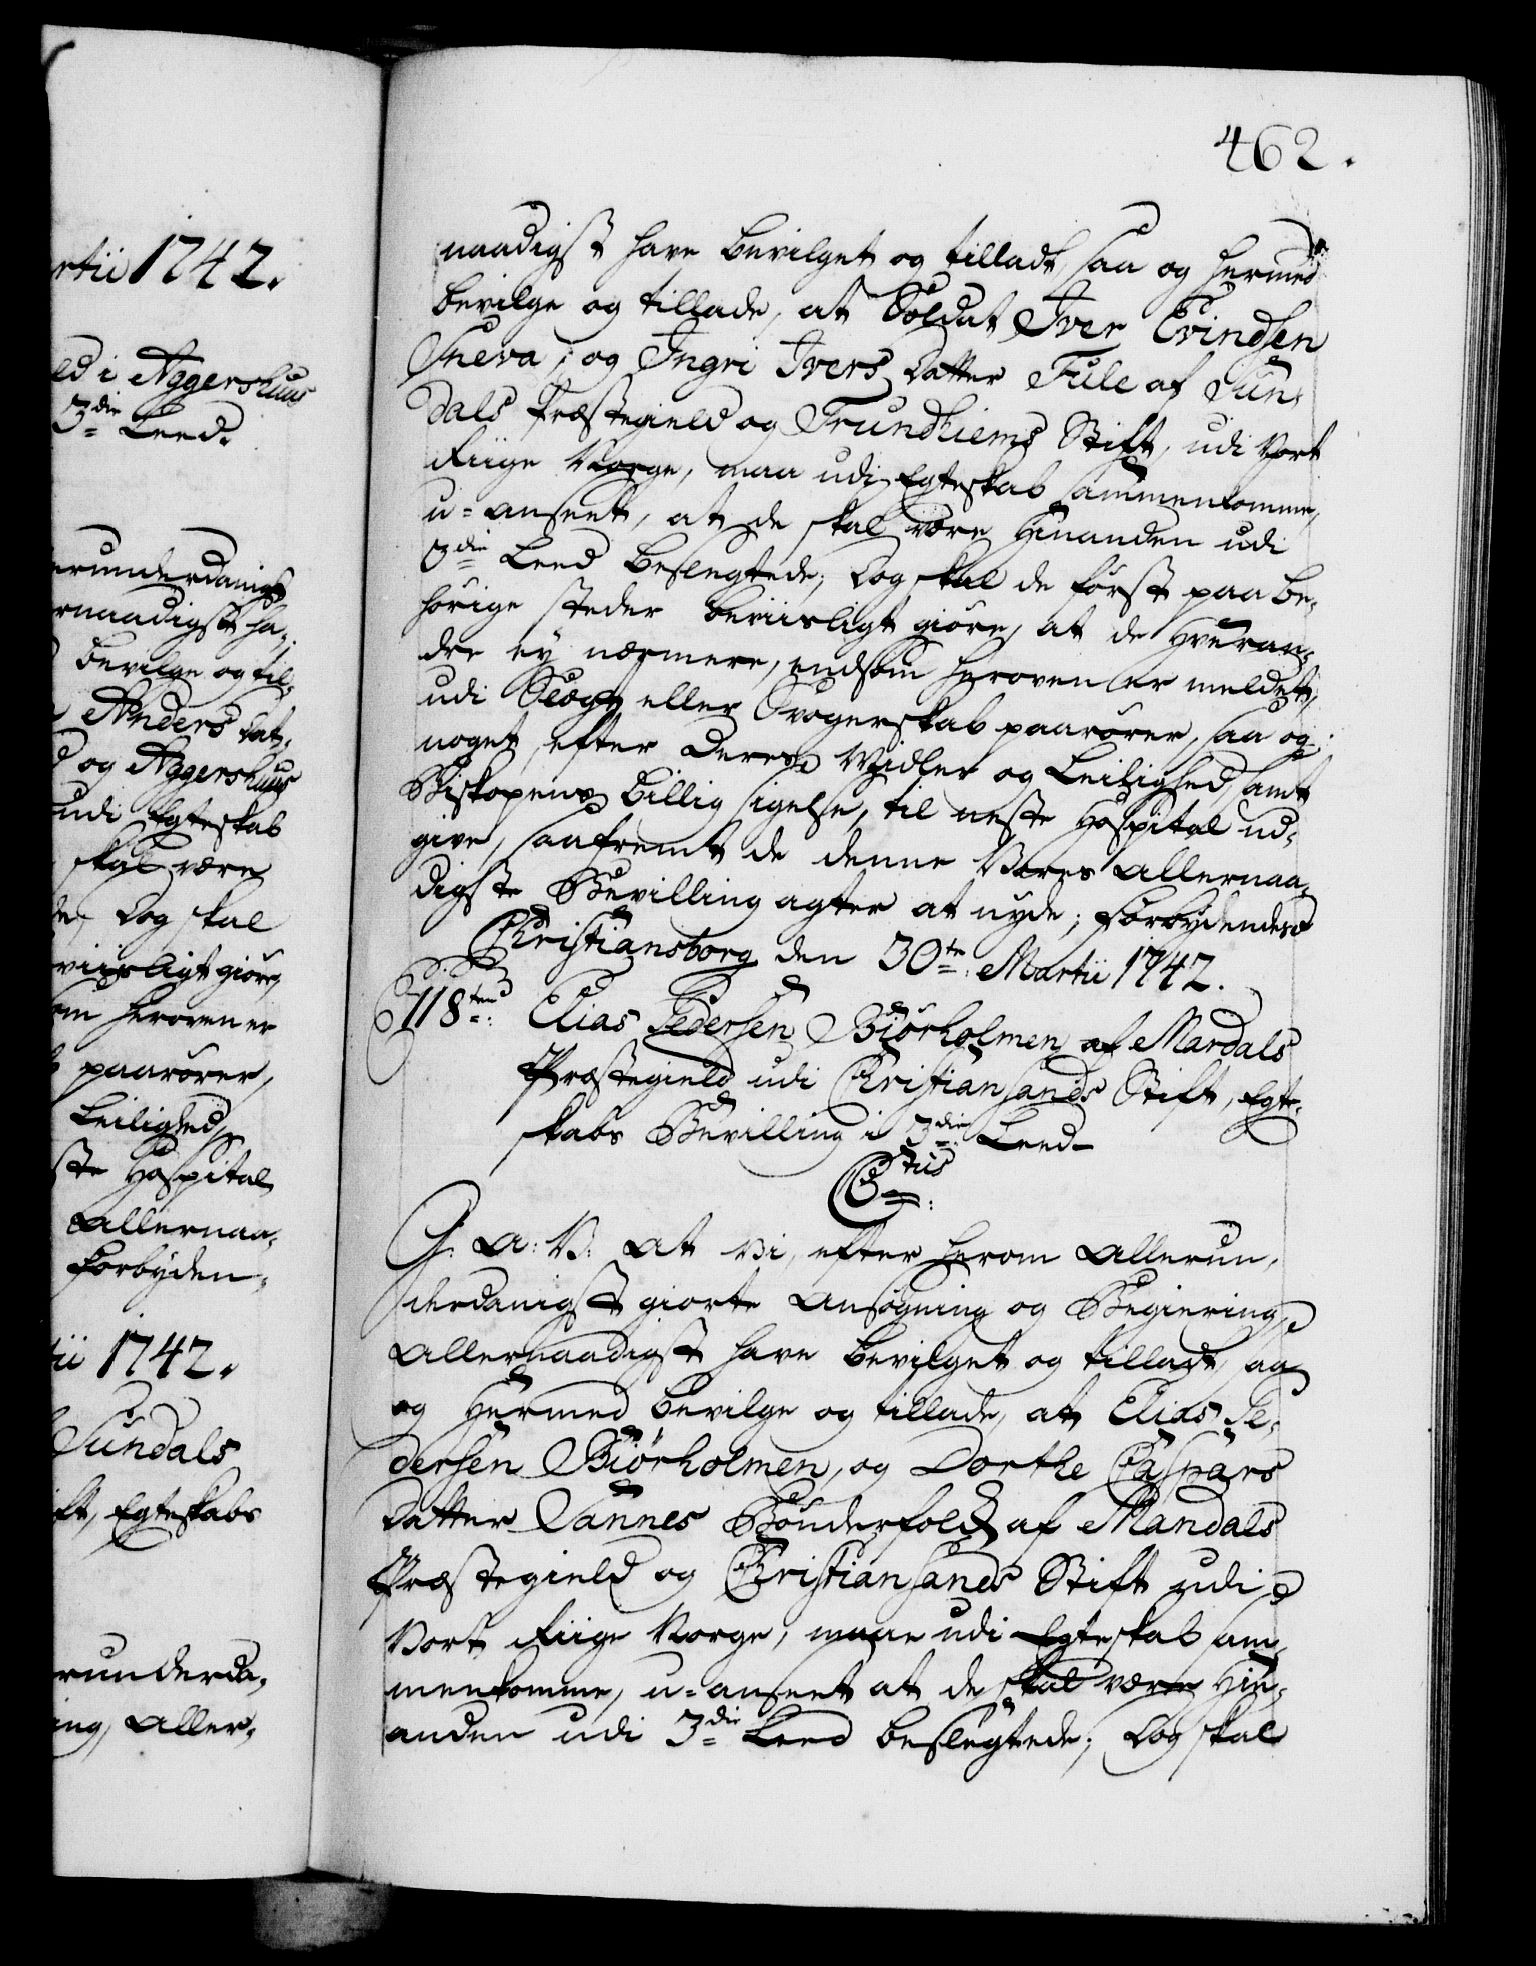 rtii 1742.
ed i Aggershuus
3die Leed.
erunderdanigst
ernaadigst ha-
bevilge og til-
Anders Dat-
d og Aggershuus
udi Egteskab
skal være
de, Dog skal
viisligt giøre,
om herovener
paarører,
Leilighed,
ste Hospital
Allernaa-
Forbyden-
tii 1742.
Sundals
ift, Egteskabs
runderda-
ing, Aller-
462.
naadigst have bevilget og tilladt, saa og hermed
bevilge og tillade, at Soldat Iver Evindsen
Sneva, og Ingri Ivers Datter Fule af Sun-
dals Præstegield og Trundhiems Stift, udi Vort
Riige Norge, maa udi Egteskab sammenkomme,
u-anseet, at de skal være Hinanden udi
3die Leed beslegtede; Dog skal de først paa be-
hørige steder beviisligt giøre, at de Hveran-
dre ey nærmere, endsom heroven er meldet,
udi Slægt eller Svogerskab paarører, saa og
noget efter Deres Midler og Leilighed samt
Biskopens billig sigelse, til neste Hospital ud-
give, saafremt de denne Vores Allernaa-
digste Bevilling agter at nyde; Forbydendes
Christiansborg den 30te Martii 1742.
118ten Elias Pedersen Biörholmen af Mandals
Præstegield udi Christiansands Stift, Egte-
skabs Bevilling i 3die Leed
C6tus
G: A: V: At Vi, efter herom Allerun-
derdanigst giorte Ansøgning og Begiering,
Allernaadigst have bevilget og tilladt, saa
og Hermed bevilge og tillade, at Elias Pe-
dersen Biörholmen, og Dorthe Caspars
Datter Sannes Bönderfolck af Mandals
Præstegield og Christiansands Stift udi
Vort Riige Norge, maae udi Egteskab sam-
menkomme, u-anseet at de skal være Hin-
anden udi 3die Leed beslegtede; Dog skal